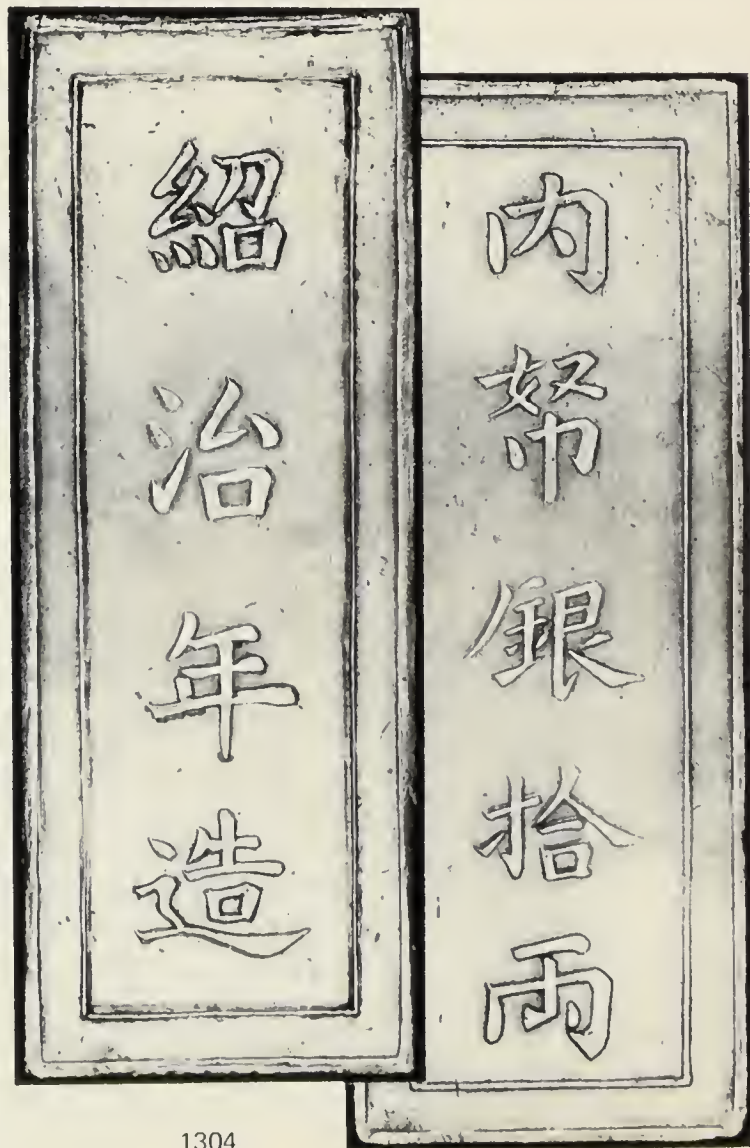 紹治年造
内帑銀拾兩
1304